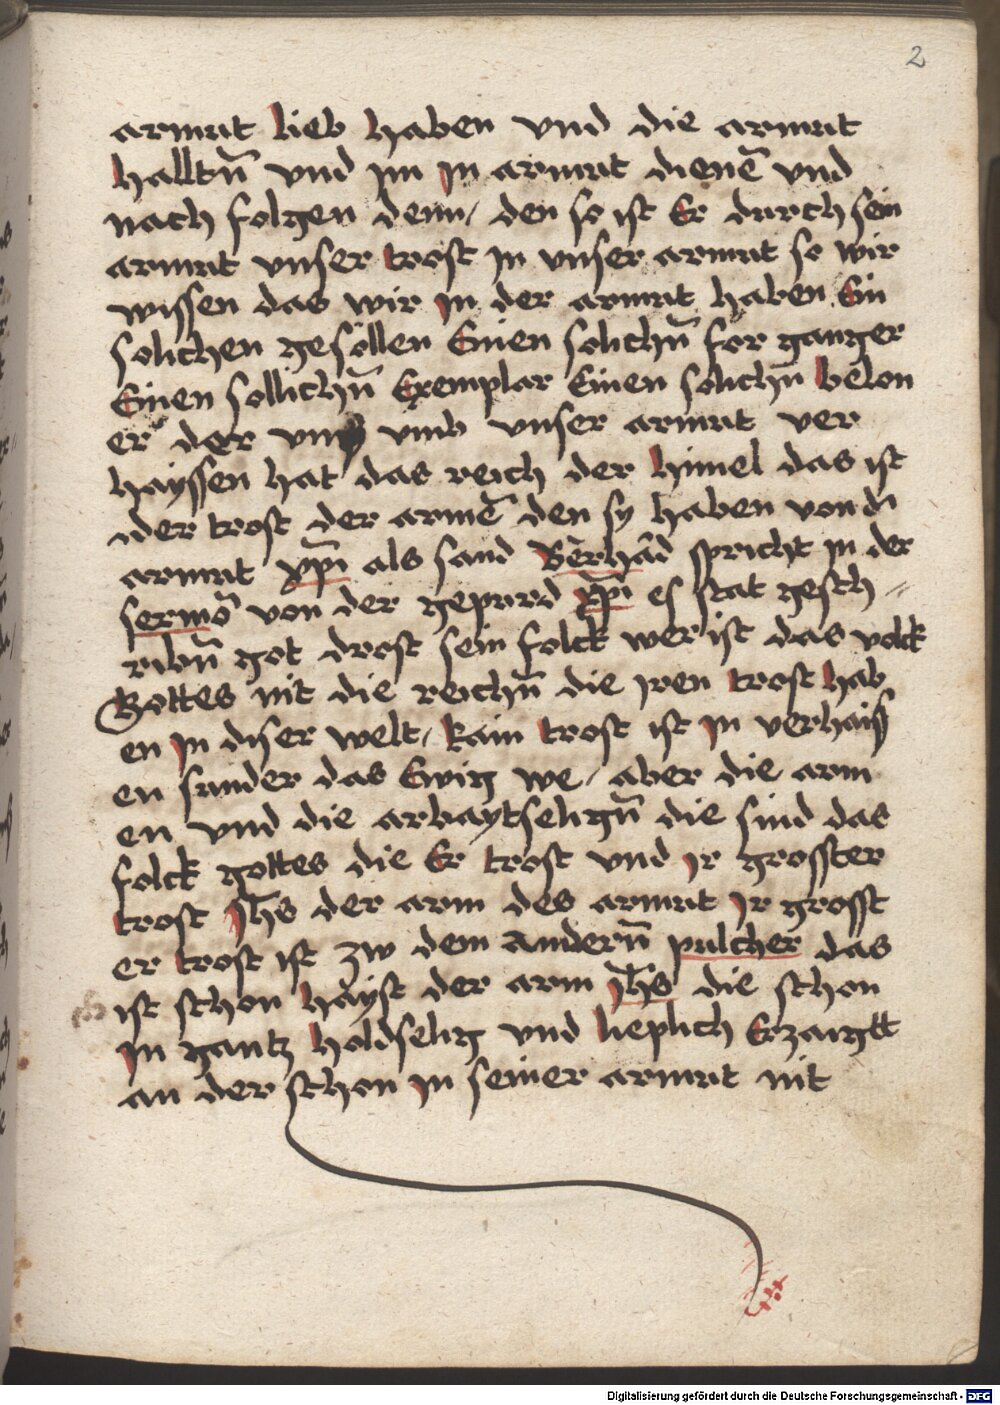 2
armut lieb haben vnd die armut
halltn̄ vnd im in armut dienē vnd
nach folgen denn / den so ist Er durch sein
armut vnser trost in vnser armut so wir
wissen das wir in der armut haben Ein
solichen gesöllen Einen solichn̄ for ganger
Einen sollichn̄ Exemplar Einen solichn̄ belon
er der vmb vnser armut ver
hayssen hat das reich der himel das ist
der trost der armē den sy haben von dn̄
armut xp̄i als sand Berhād spricht in der
sermō von der gepurd xp̄i es stat gesch〃
ribn̄ got drost sein folck wer ist das volck
Gottes nit die reichn̄ die iren trost hab
en in diser welt / kain trost ist in verhaiss
en sunder das Ewig we / aber die arm
en vnd die arbaytselign̄ die sind das
folck gottes die Er trost vnd ir grosster
trost Jh̄s der arm des armut ir grosst
er trost ist zw dem andern̄ pulcher das
ist schon hayst der arm Jh̄s die schon
in gantz holdselig vnd lieplich Erzaigtt
an der schon in seiner armut nit
Digitalisierung gefördert durch die Deutsche Forschungsgemeinschaft - DFG